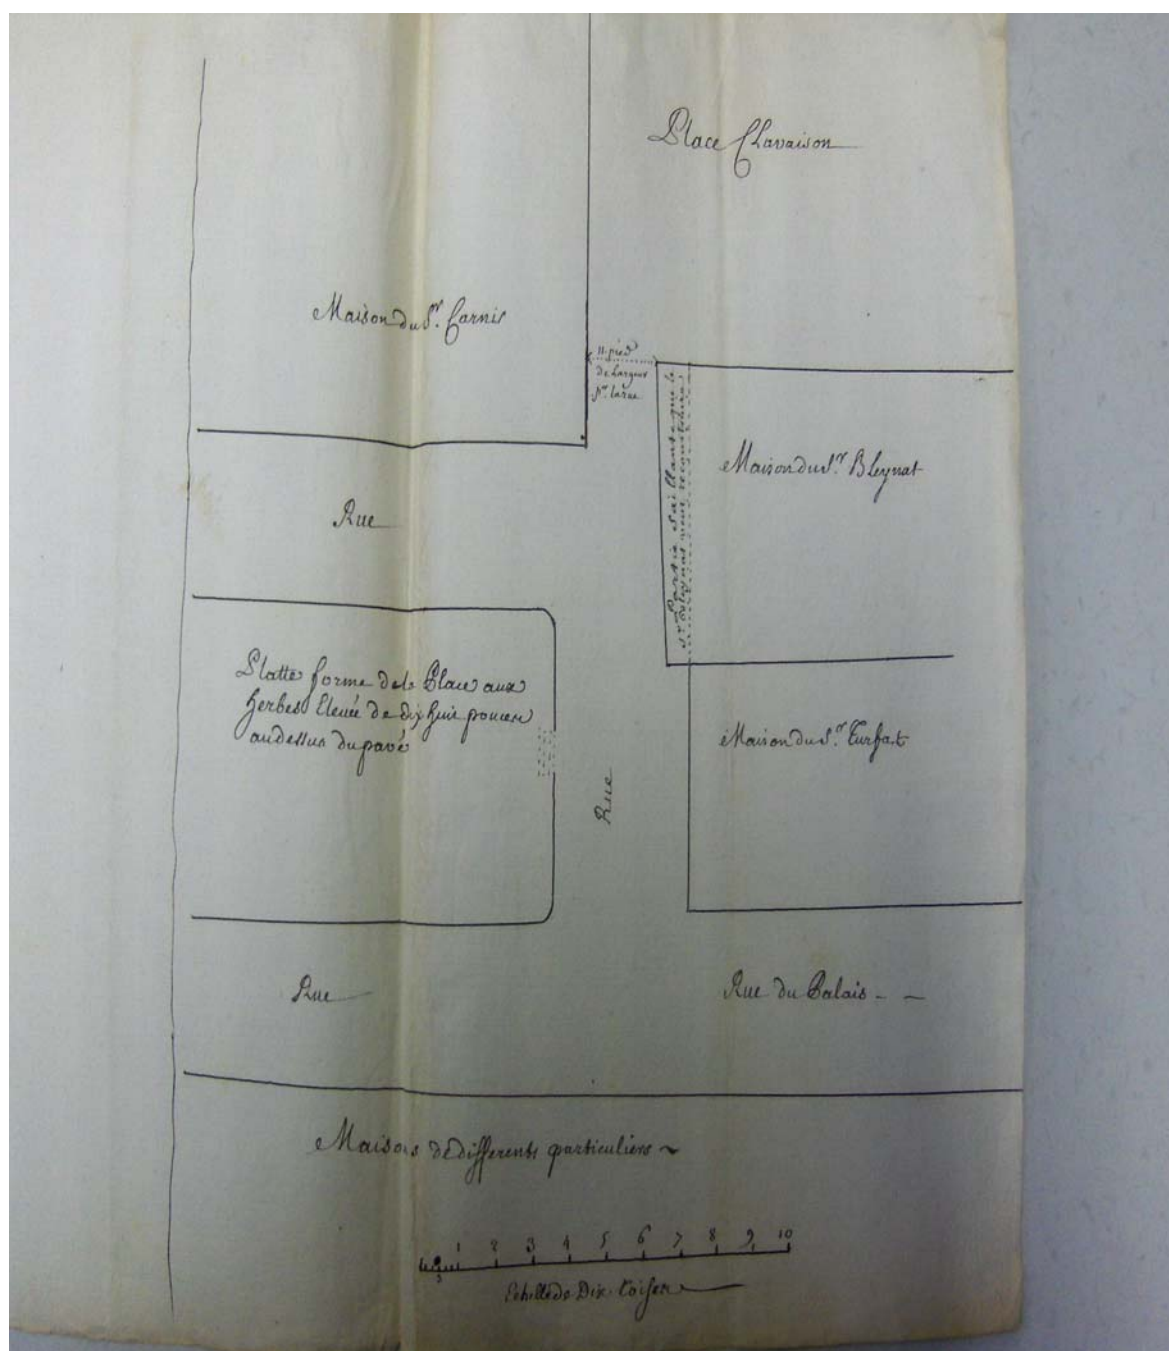 Place Chavaison
Maison du Sr. Carnis
11. pied
de Largeur
pr. larue
Maison du Sr. Bleynat
Partie Saillante que le
Sr. veut reconstruire
Rue
Platte forme de la Place aux
herbes Elevée de dix huit pouces
au dessus du pavé
Maison du Sr. Turfat
Rue
Rue
Rue du Palais
Maisons de differents particuliers
1 2 3 4 5 6 7 8 9 10
3
Echelle de Dix Toises